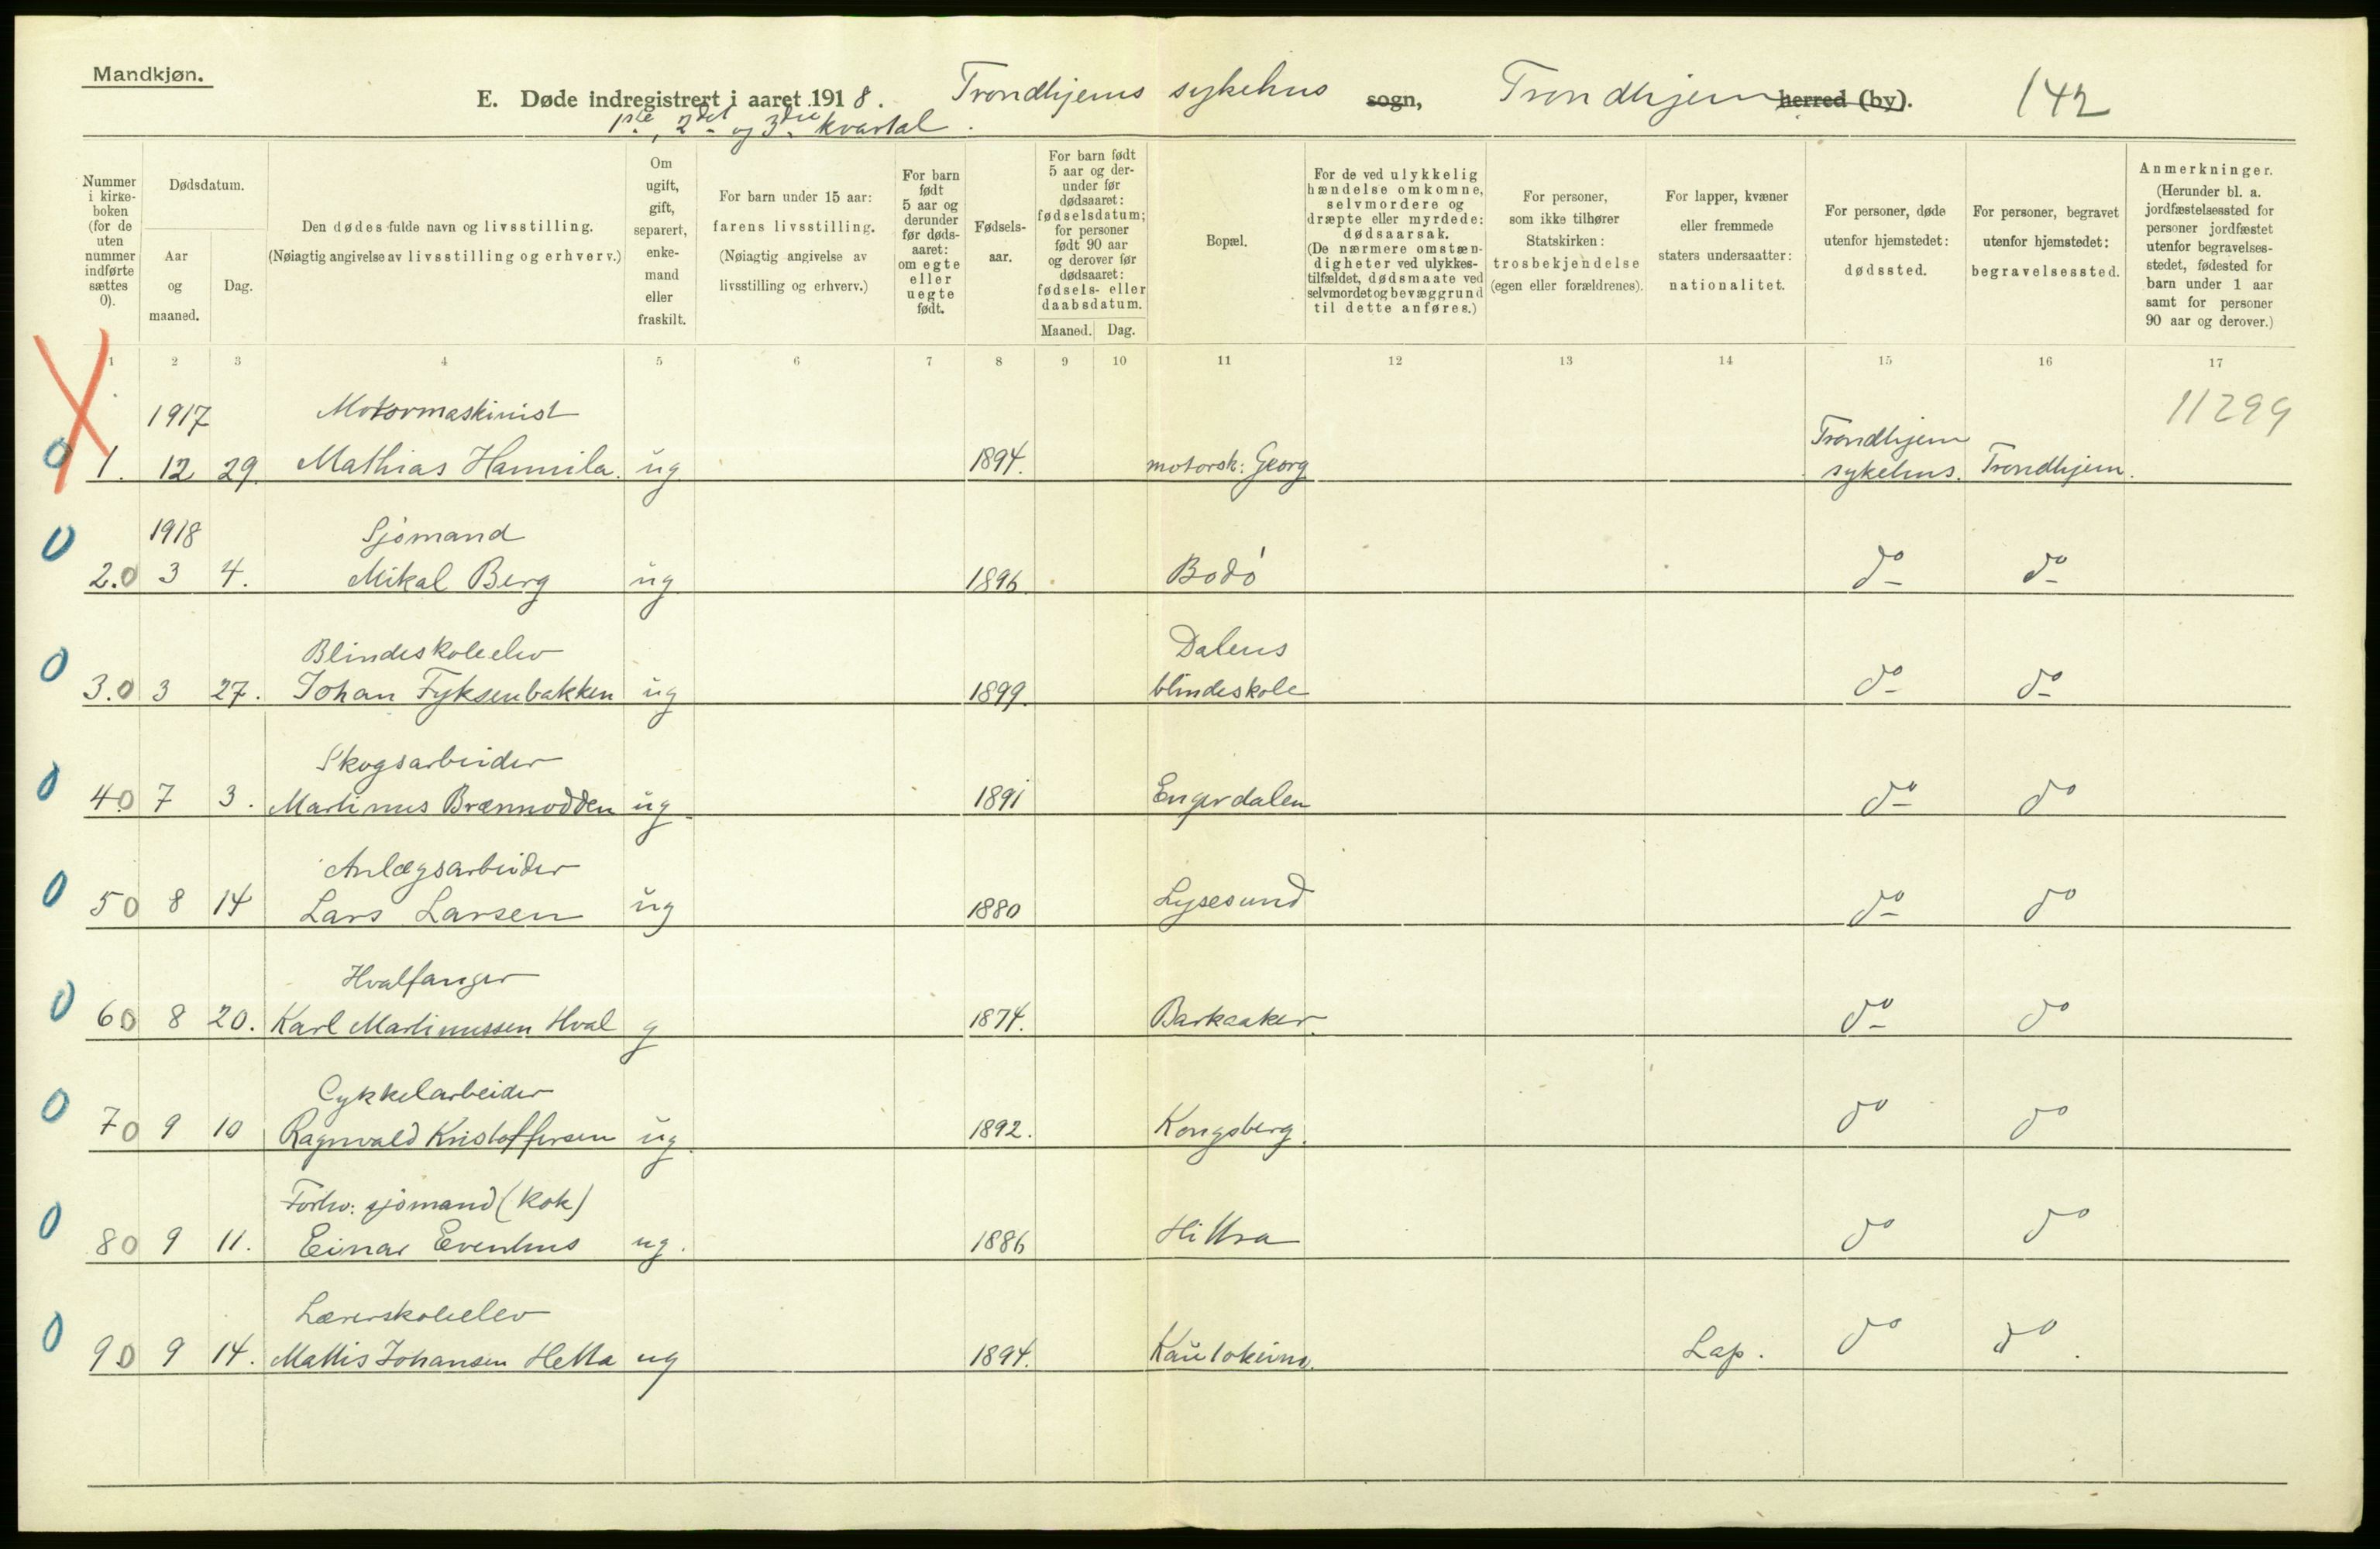 Mandkjøn.
E. Døde indregistrert i aaret 1918. Trondhjems sykehus sogn, Trondhjem herred (by). 142
1ste, 2det og 3die kvartal.
Nummer i kirke-boken (for de uten nummer indførte sættes 0).
Dødsdatum.
Aar og maaned.
Dag.
Den dødes fulde navn og livsstilling.
(Nøiagtig angivelse av livsstilling og erhverv.)
Om ugift, gift, separert, enke-mand eller fraskilt.
For barn under 15 aar:
farens livsstilling.
(Nøiagtig angivelse av livsstilling og erhverv.)
For barn født 5 aar og derunder før døds-aaret: om egte eller uegte født.
Fødsels-aar.
For barn født 5 aar og der-under før dødsaaret: fødselsdatum; for personer født 90 aar og derover før dødsaaret: fødsels- eller daabsdatum.
Maaned. Dag.
Bopæl.
For de ved ulykkelig hændelse omkomne, selvmordere og dræpte eller myrdede: dødsaarsak.
(De nærmere omstæn-digheter ved ulykkes-tilfældet, dødsmaate ved selvmordet og bevæggrund til dette anføres.)
For personer, som ikke tilhører Statskirken: trosbekjendelse (egen eller forældrenes).
For lapper, kvæner eller fremmede staters undersaatter: nationalitet.
For personer, døde utenfor hjemstedet: dødssted.
For personer, begravet utenfor hjemstedet: begravelsessted.
Anmerkninger.
(Herunder bl. a. jordfæstelsessted for personer jordfæstet utenfor begravelses-stedet, fødested for barn under 1 aar samt for personer 90 aar og derover.)
1 2 3 4 5 6 7 8 9 10 11 12 13 14 15 16 17
1917 Motormaskinist Trondhjem 11299
0 1. 12 29. Mathias Hannila. ug. 1894. motorsk: Georg sykehus. Trondhjem.
0 1918 Sjömand
2.0 3 4. Mikal Berg ug. 1896. Bodö do do
0 Blindeskoleelev Dalens
3.0 3 27. Johan Fyksenbakken ug 1899. blindeskole do do
0 Skogsarbeider
4.0 7 3. Martinus Brænnodden ug. 1891 Engerdalen do do
0 Anlægsarbeider
5 0 8 14 Lars Larsen ug 1880 Lysesund do do
0 Hvalfanger
6 0 8 20. Karl Martinussen Hval g 1874. Barkaaker. do do
0 Cykkelarbeider
7 0 9 10 Ragnvald Kristoffersen ug. 1892. Kongsberg. do do
0 Forhv: sjömand (kok)
8 0 9 11. Einar Evenhus ug. 1886 Hittra do do
0 Lærerskoleelev
9 0 9 14. Mattis Johansen Hetta ug 1894. Kautokeino. Lap. do do.